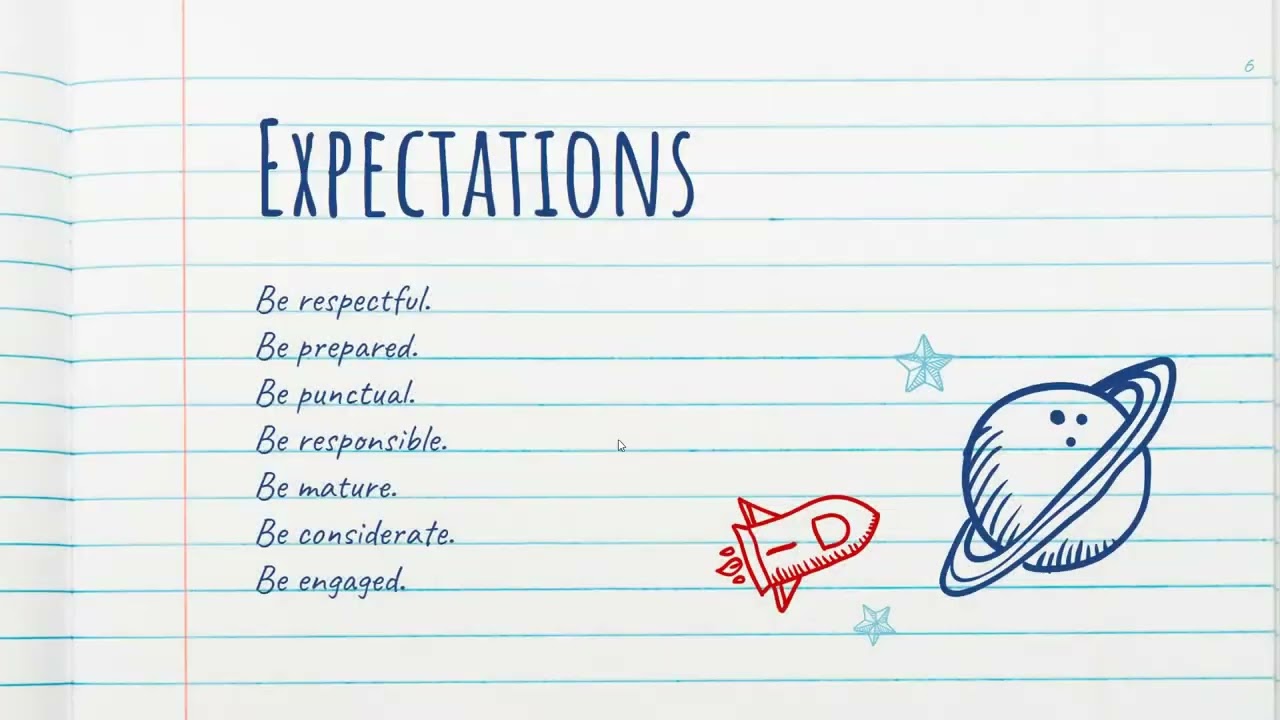 6
Expectations
Be respectful.
Be prepared.
Be punctual.
Be responsible.
Be mature.
Be considerate.
Be engaged.